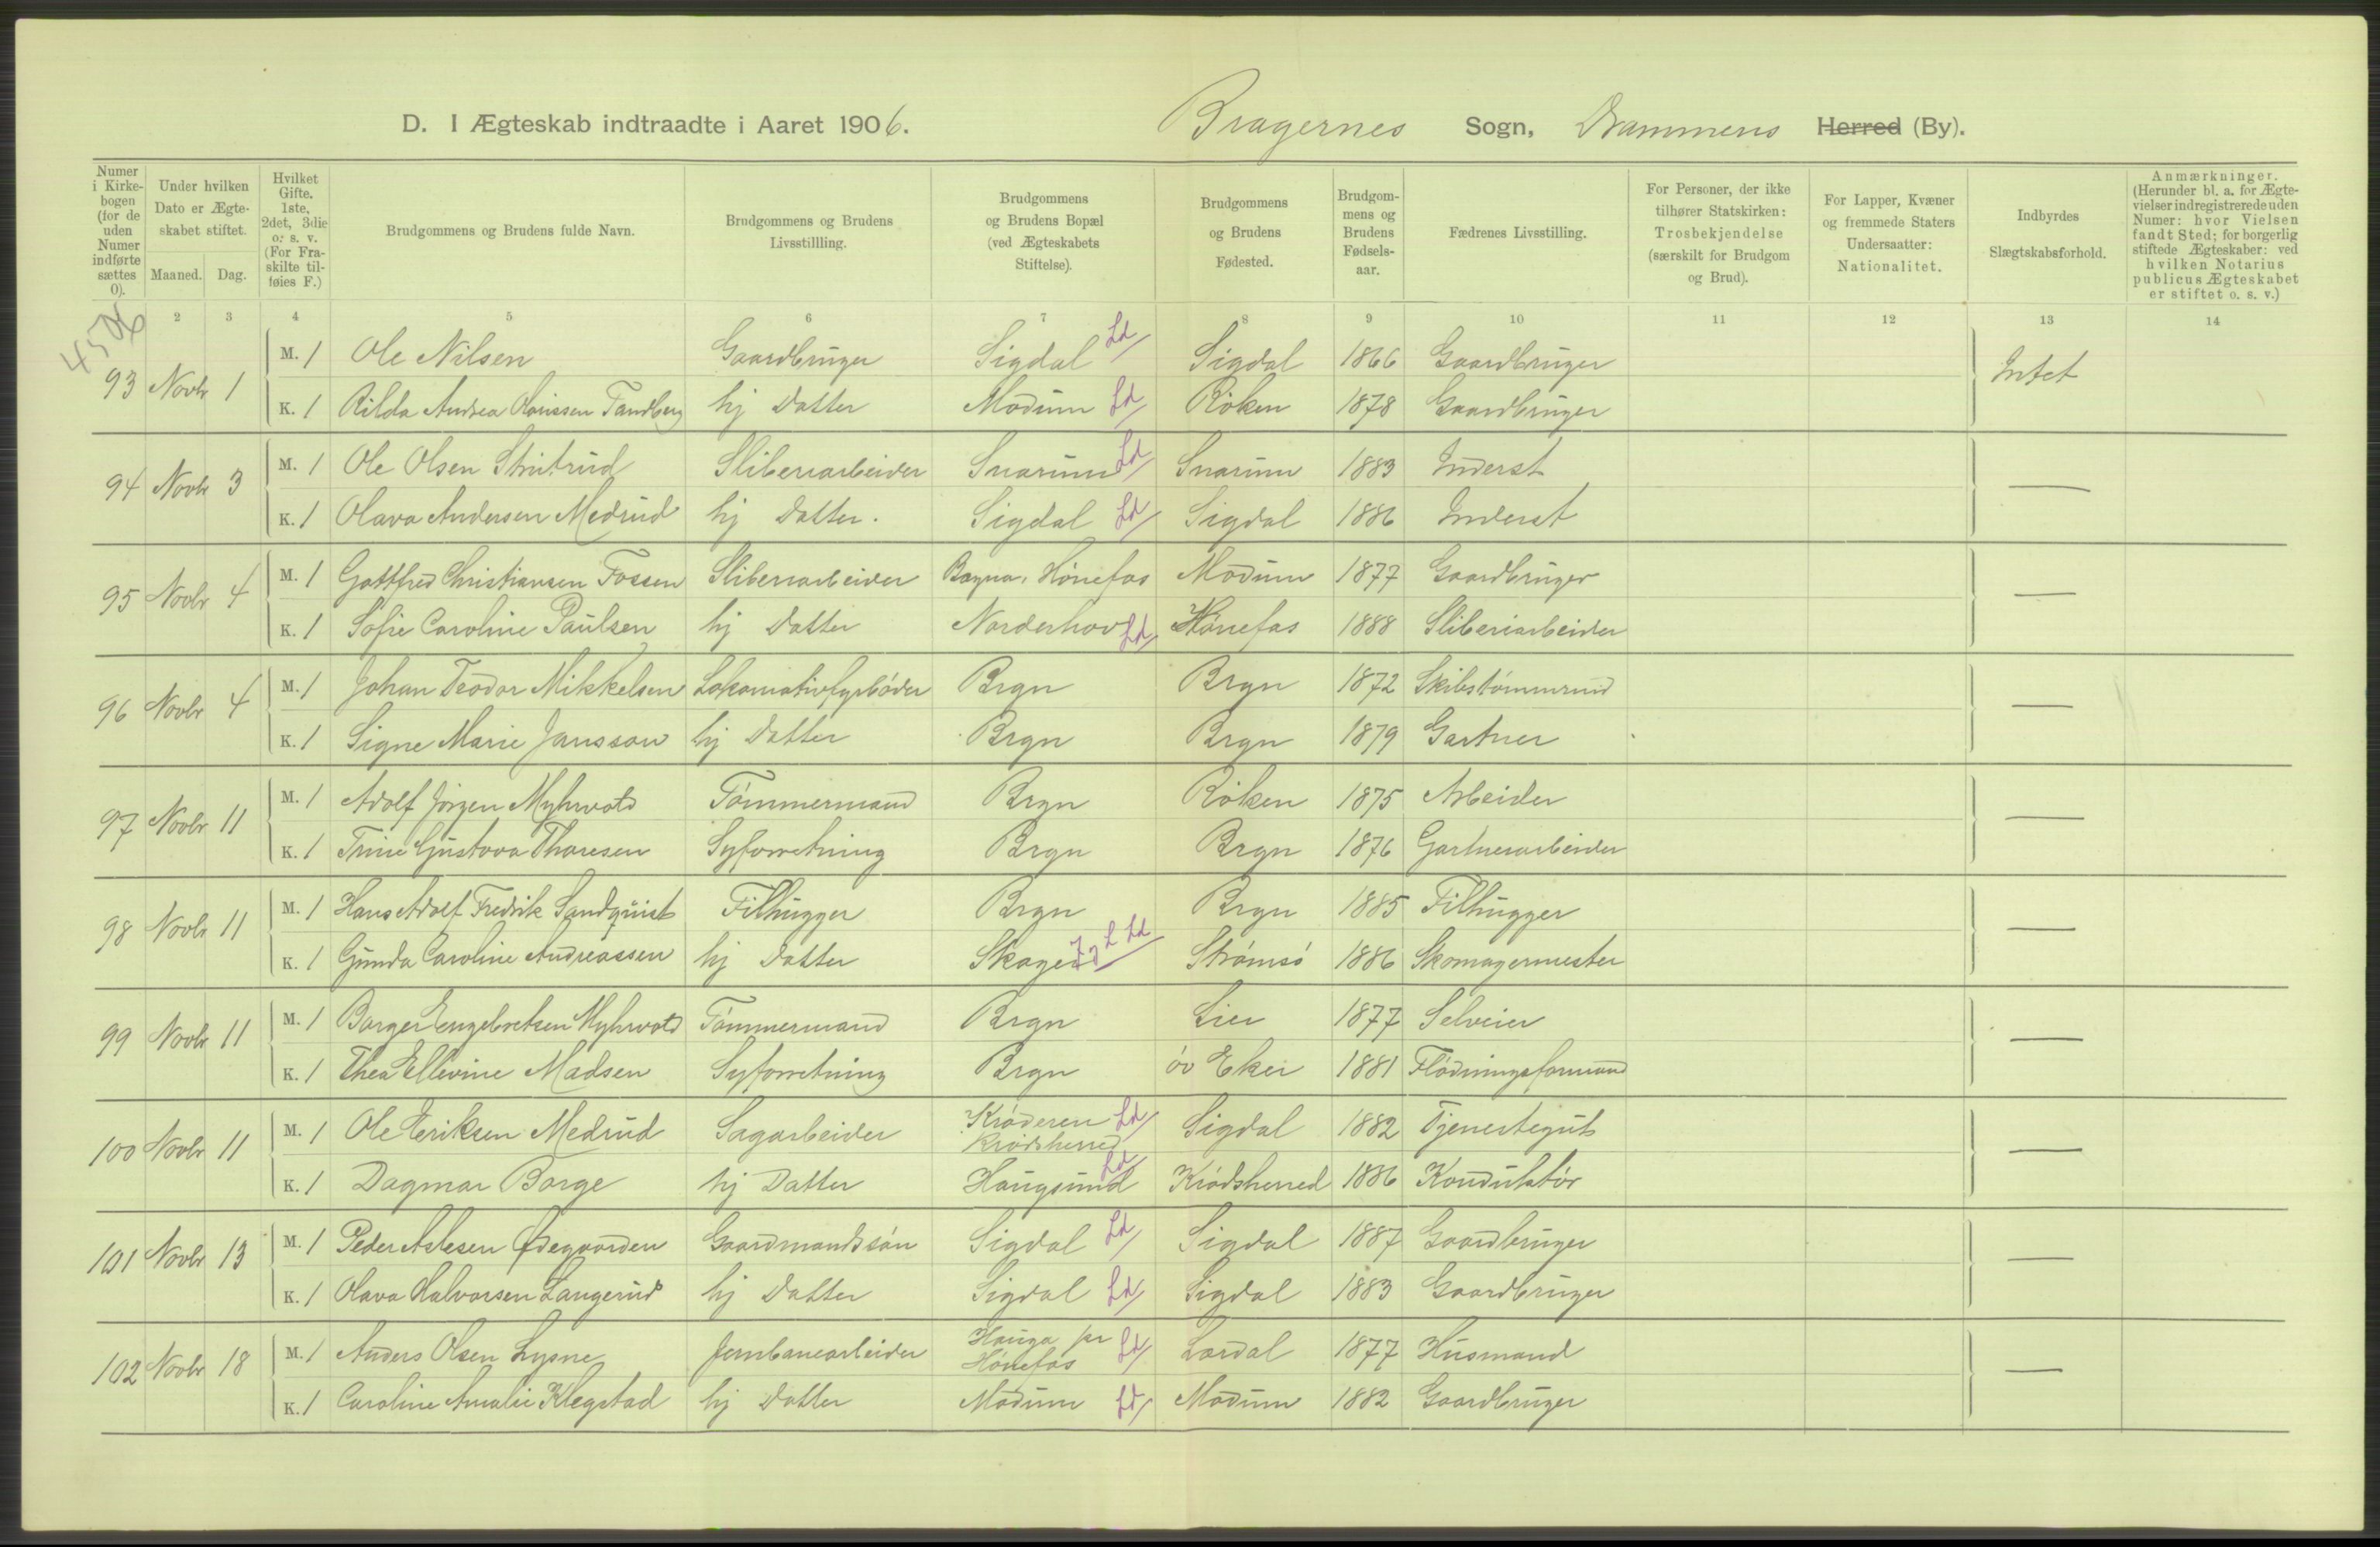 D. I Ægteskab indtraadte i Aaret 1906. Bragernes Sogn, Drammens Herred (By).
Numer i Kirkebogen (for de uden Numer indførte sættes 0).
Under hvilken Dato er Ægteskabet stiftet.
Maaned. Dag.
Hvilket Gifte. 1ste, 2det, 3die o: s. v. (For Fraskilte tilføies F.)
Brudgommens og Brudens fulde Navn.
Brudgommens og Brudens Livsstillling.
Brudgommens og Brudens Bopæl (ved Ægteskabets Stiftelse).
Brudgommens og Brudens Fødested.
Brudgommens og Brudens Fødselsaar.
Fædrenes Livsstilling.
For Personer, der ikke tilhører Statskirken: Trosbekjendelse (særskilt for Brudgom og Brud).
For Lapper, Kvæner og fremmede Staters Undersaatter: Nationalitet.
Indbyrdes Slægtskabsforhold.
Anmærkninger. (Herunder bl. a. for Ægtevielser indregistrerede uden Numer: hvor Vielsen fandt Sted; for borgerlig stiftede Ægteskaber: ved hvilken Notarius publicus Ægteskabet er stiftet o. s. v.)
2 3 4 5 6 7 8 9 10 11 12 13 14
93 Novbr 1 M. 1 Ole Nilsen Gaardbruger Sigdal Ld Sigdal 1866 Gaardbruger Intet
K. 1 Andrea Tandberg hj Datter Modum Ld Röken 1878 Gaardbruger
94 Novbr 3 M. 1 Ole Olsen Strutrud Sliberiarbeider Snarum Ld Snarum 1883 Inderst —
K. 1 Olava Andersen Medrud hj Datter. Sigdal Ld Sigdal 1886 Inderst
95 Novbr 4 M. 1 Gottfred Christiansen Fossen Sliberiarbeider Hönefos Modum 1877 Gaardbruger —
K. 1 Sofie Caroline Paulsen hj Datter Norderhov Ld Hönefos 1888 Sliberiarbeider
96 Novbr 4 M. 1 Johan Teodor Mikkelsen Lokomotivfyrböder Brgn Brgn 1872 —
K. 1 Signe Marie Jansson hj Datter Brgn Brgn 1879 Gartner
97 Novbr 11 M. 1 Adolf Jörgen Myhrvold Tömmermand Brgn Röken 1875 Arbeider —
K. 1 Trine Gustava Thoresen Syforretning Brgn Brgn 1876 Gartnerarbeider
98 Novbr 11 M. 1 Hans Adolf Fredrik Sandquist Filhugger Brgn Brgn 1885 Filhugger —
K. 1 Gunda Caroline Andreassen hj Datter Skoger Ld Strömsö 1886 Skomagermester
99 Novbr 11 M. 1 Borger Engebretsen Myhrvold Tömmermand Brgn Lier 1877 Selveier —
K. 1 Thea Ellevine Madsen Syforretning Brgn öv Eker 1881 Flödningsformand
100 Novbr 11 M. 1 Ole Eriksen Medrud Sagarbeider Kröderen Ld Sigdal 1882 Tjenestegut —
Krödsherred
K. 1 Dagmar Borge hj Datter Haugsund Ld Krödsherred 1886 Konduktör
101 Novbr 13 M. 1 Peder Aslesen Ödegaarden Gaardmandssön Sigdal Ld Sigdal 1887 Gaardbruger —
K. 1 Olava Halvorsen Langerud hj Datter Sigdal Ld Sigdal 1883 Gaardbruger
102 Novbr 18 M. 1 Anders Olsen Lysne Jernbanearbeider Hauga pr Ld Lardal 1877 Husmand —
Hönefos
K. 1 Caroline Amalie Klegstad hj Datter Modum Ld Modum 1882 Gaardbruger